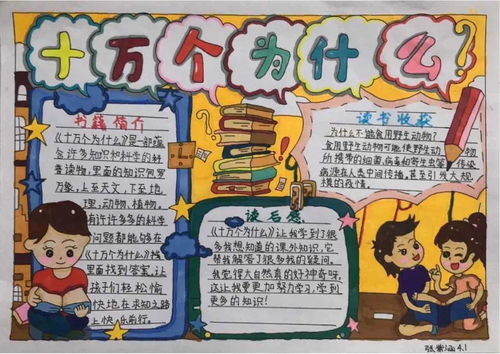 十万个为什么?
书籍简介
《十万个为什么》是一部蕴
含许多知识和科学的科
普读物,里面的知识包罗
万象,上至天文,下至地
理,动物,植物,
有许许多多的科学
问题都能够在
《十万个为什么》
里面找到答案,让
孩子们轻松愉
快地在求知之路
上快乐前行。
读后感
《十万个为什么》让我学到了很
多我想知道的课外知识,它
帮我解答了很多我的疑问。
我觉得大自然真的好神奇呀,
这让我要更加努力学习,学到
更多的知识!
读书收获
为什么不能食用野生动物?
食用野生动物可能使野生动物
所携带的细菌、病毒和寄生虫等传染
病源在人类中间传播,甚至引发大规
模的疫情。
张紫涵4.1